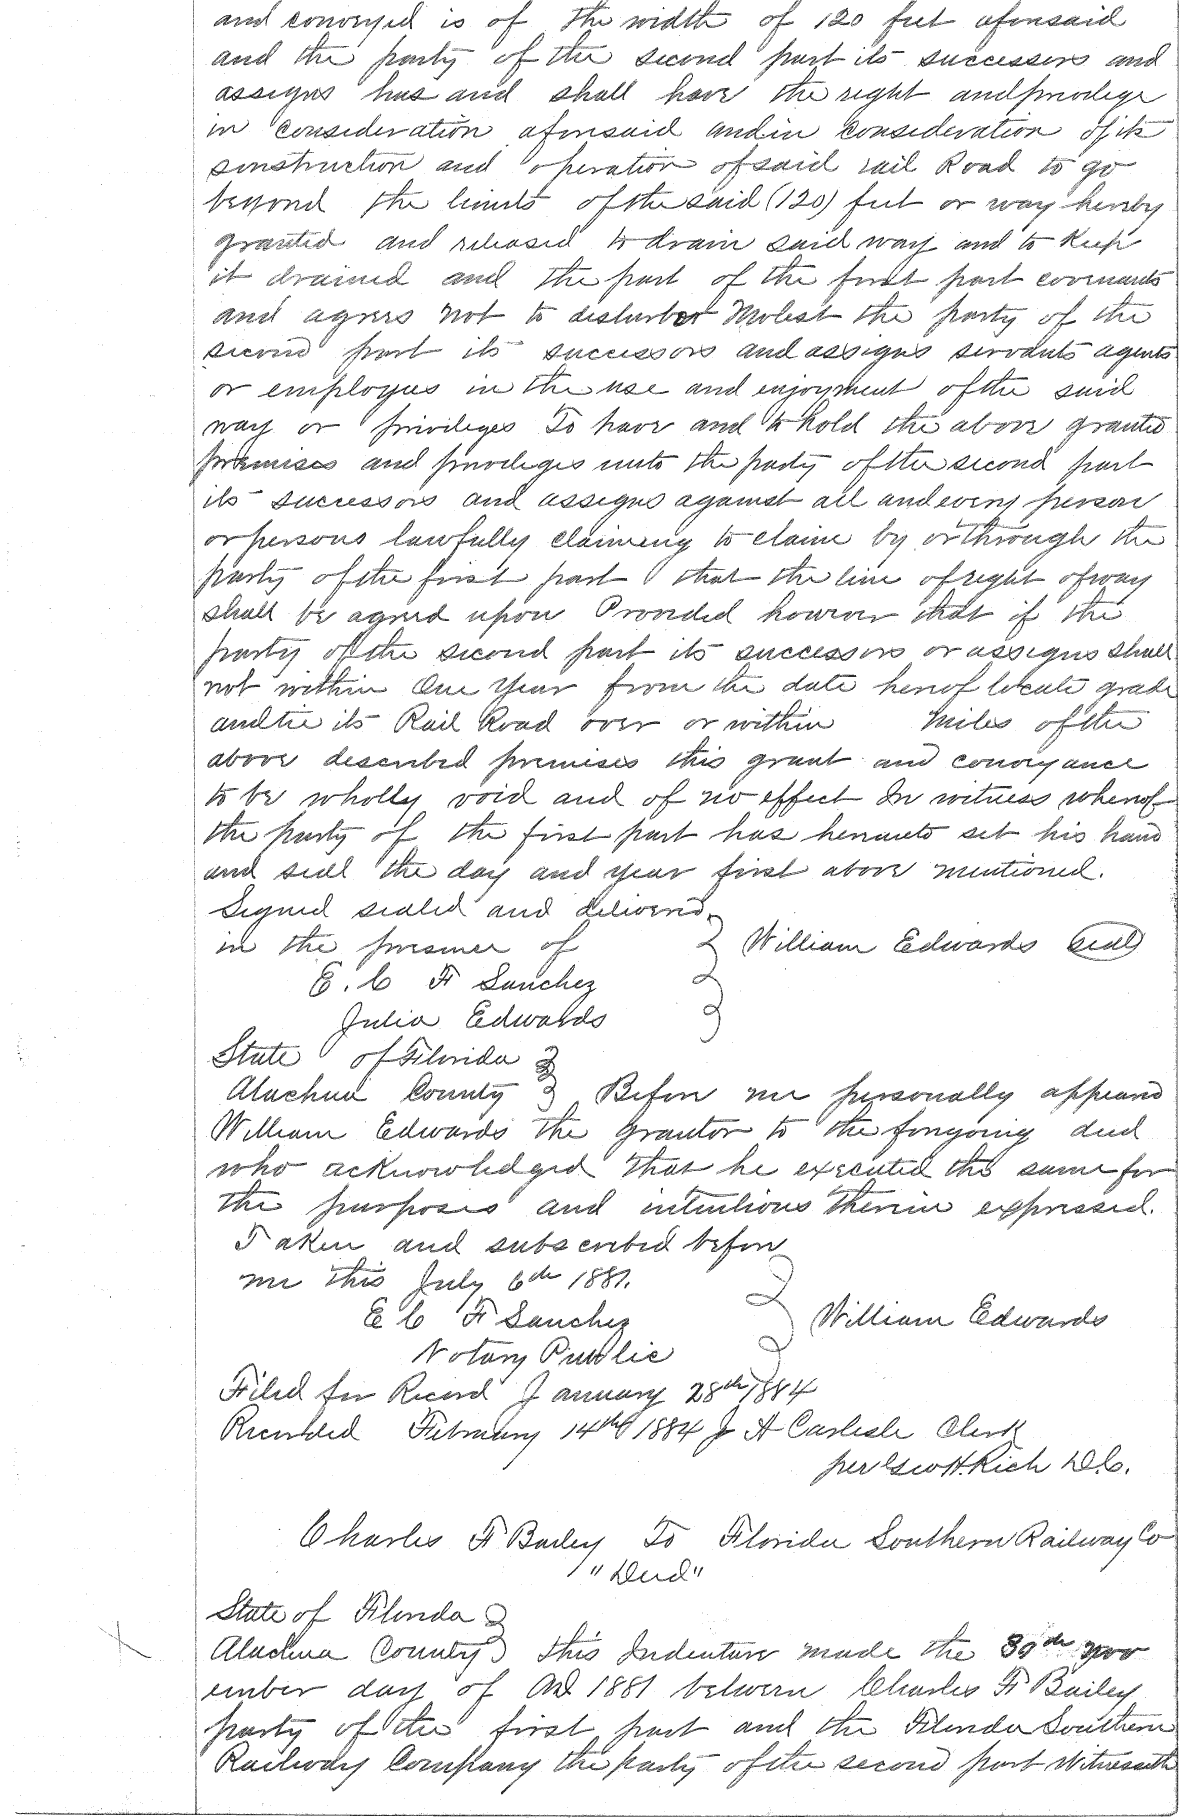 and conveyed is of the width of 120 feet aforesaid
and the party of the second part its successors and
assigns has and shall have the right and privilege
in consideration aforesaid and in consideration of its
construction and operation of said rail Road to go
beyond the limits of the said (120) feet or way hereby
granted and released to drain said way and to keep
it drained and the part of the first part covenants
and agrees not to disturb or Molest the party of the
second part its successors and assigns servants agents
or employees in the use and enjoyment of the said
way or privileges To have and to hold the above granted
premises and privileges unto the party of the second part
its successors and assigns against all and every person
or persons lawfully claiming to claim by or through the
party of the first part that the line of right of way
shall be agreed upon Provided however that if the
party of the second part its successors or assigns shall
not within One Year from the date hereof locate grade
and tie its Rail Road over or within miles of the
above described premises this grant and conveyance
to be wholly void and of no effect In witness whereof
the party of the first part has hereunto set his hand
and seal the day and year first above mentioned.
Signed sealed and delivered
in the presence of William Edwards seal
E. C F Sanchez
Julia Edwards
State of Florida
Alachua County Before me personally appeared
William Edwards the Grantor to the foregoing deed
who acknowledged that he executed the same for
the purposes and intentions therein expressed.
Taken and subscribed before
me this July 6th 1881.
E C F Sanchez William Edwards
Notary Public
Filed for Record January 28th 1884
Recorded February 14th 1884 J A Carlisle Clerk
per Geo H. Rich D.C.
Charles F Bailey To Florida Southern Railway Co
"Deed"
State of Florida
Alachua County This Indenture made the 30th Nov
ember day of AD 1881 between Charles F Bailey
party of the first part and the Florida Southern
Railway Company the party of the second part Witnesseth